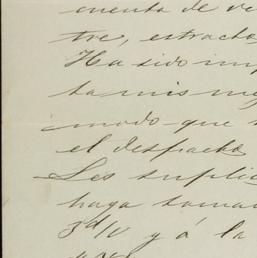 cuenta de ve
tre, estracto
Ha sido imp
ta mis me
modo que
el despacho
Les suplic
haga toma
3 d/v y á la